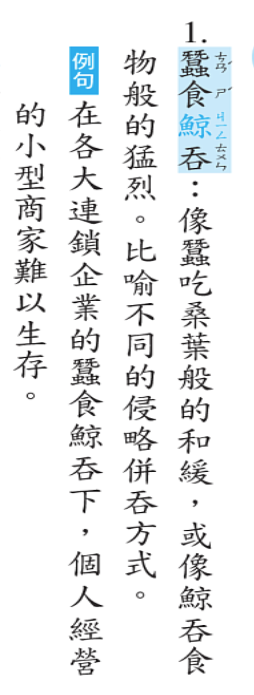 1.蠶食鯨吞：像蠶吃桑葉般的和緩，或像鯨吞食
ㄘㄢˊ ㄕˊ ㄐㄧㄥ ㄊㄨㄣ
物般的猛烈。比喻不同的侵略併吞方式。
例句 在各大連鎖企業的蠶食鯨吞下，個人經營
的小型商家難以生存。